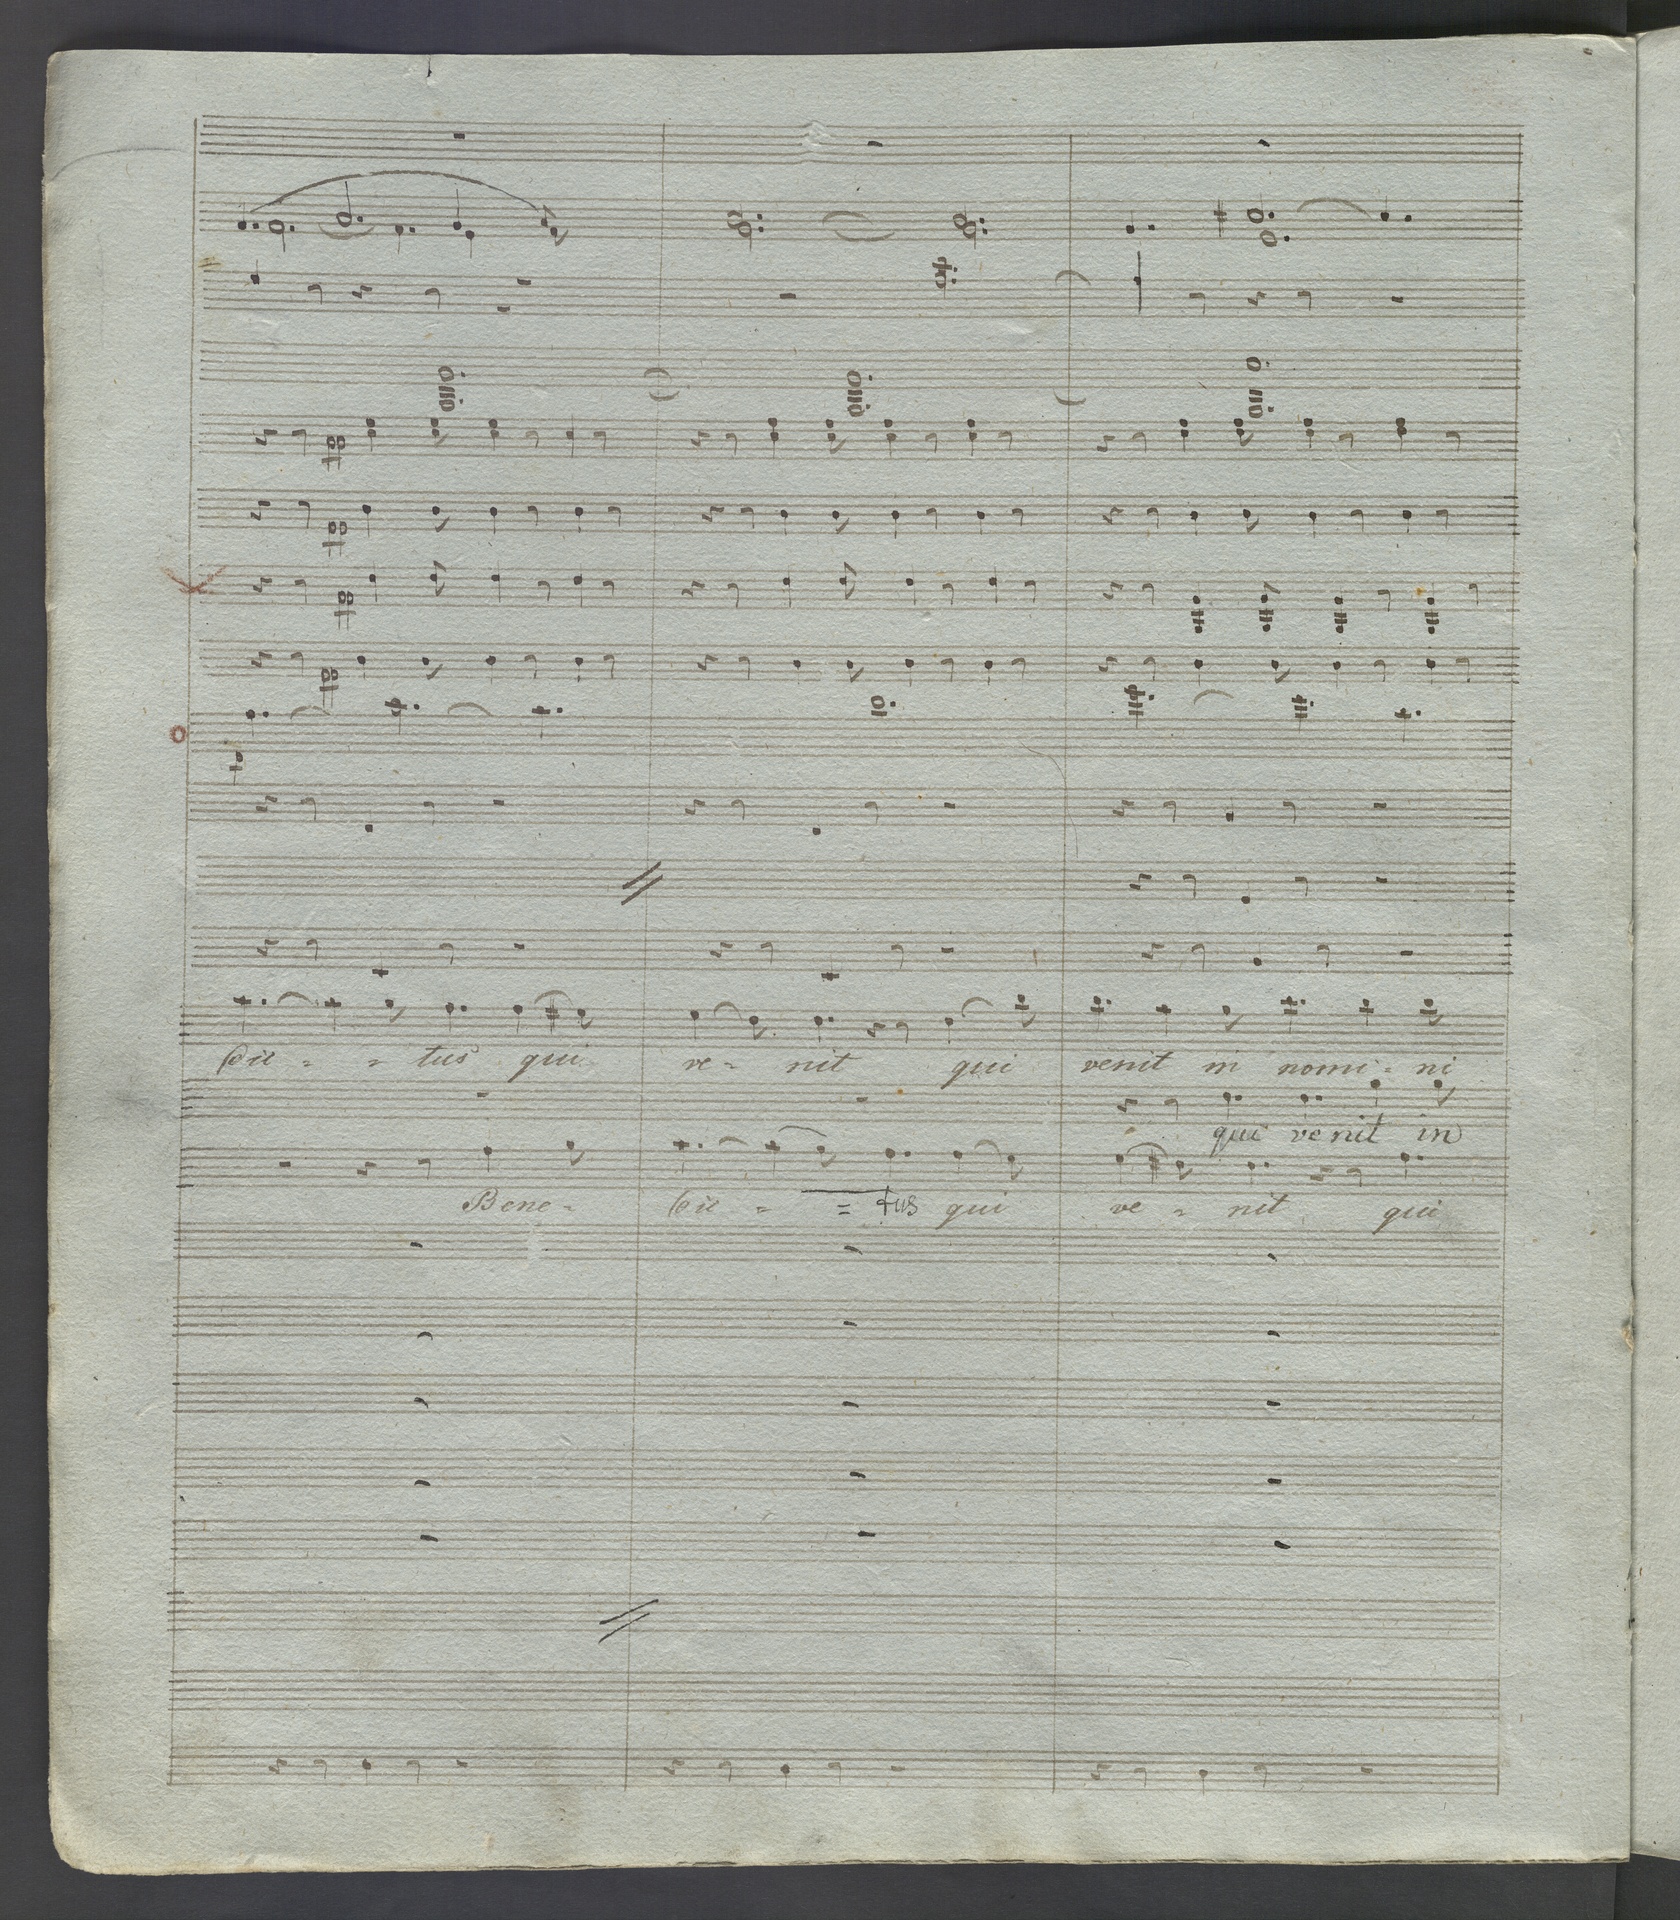 dic - - tus qui ve - nit qui venit in nomi - ni
qui venit in
Bene - dic - = tus qui ve - nit qui